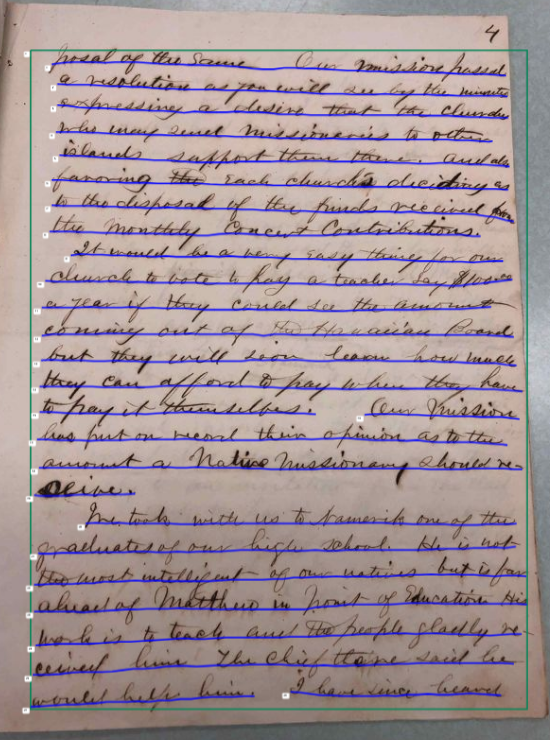 4
posal of the same Our mission passed
a resolution as you will see by the minutes
expressing a desire that the churches
who may send missionaries to other
islands support them there. and also
favoring the each church's deciding as
to the disposal of the funds received from
the Monthly Concert Contributions.
It would be a very easy thing for our
church to vote to pay a teacher say
a year if they could see the amount
coming out of the Hawaiian Board
but they will soon learn how much
they can afford to pay when they have
to pay it themselves. Our Mission
has put on record their opinion as to the
amount a Native Missionary should re-
ceive.
We took with us to Namerik one of the
graduates of our high school. He is not
the most intelligent of our natives but is far
ahead of Matthew in point of Education His
work is to teach and the people gladly re-
ceived him The Chief there said he
would help him. I have since heard